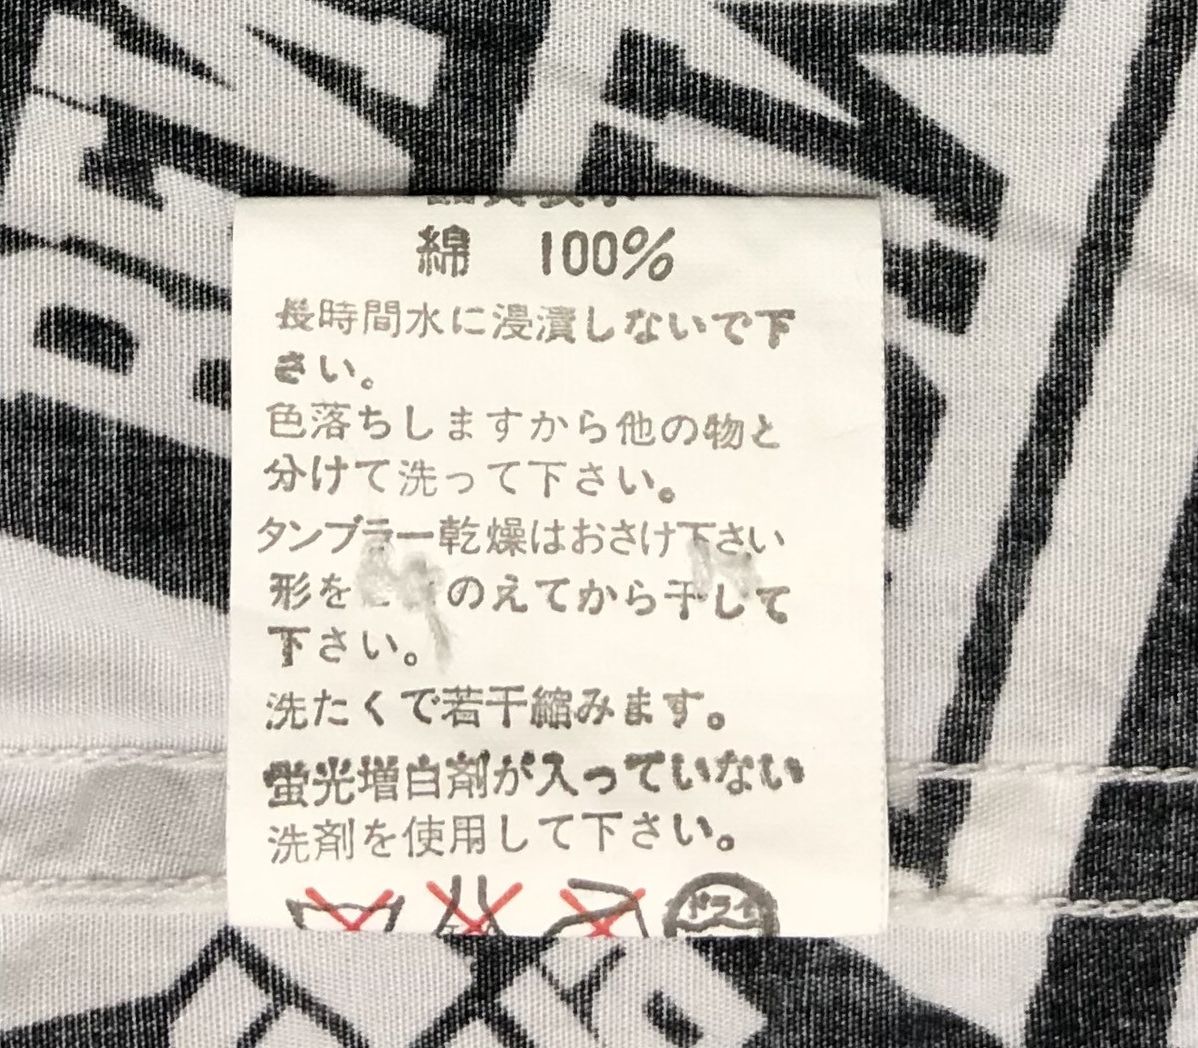 綿 100%
長時間水に浸漬しないで下
さい。
色落ちしますから他の物と
分けて洗って下さい。
タンブラー乾燥はおさけ下さい
形を のえてから干して
下さい。
洗たくで若干縮みます。
蛍光増白剤が入っていない
洗剤を使用して下さい。
ドライ